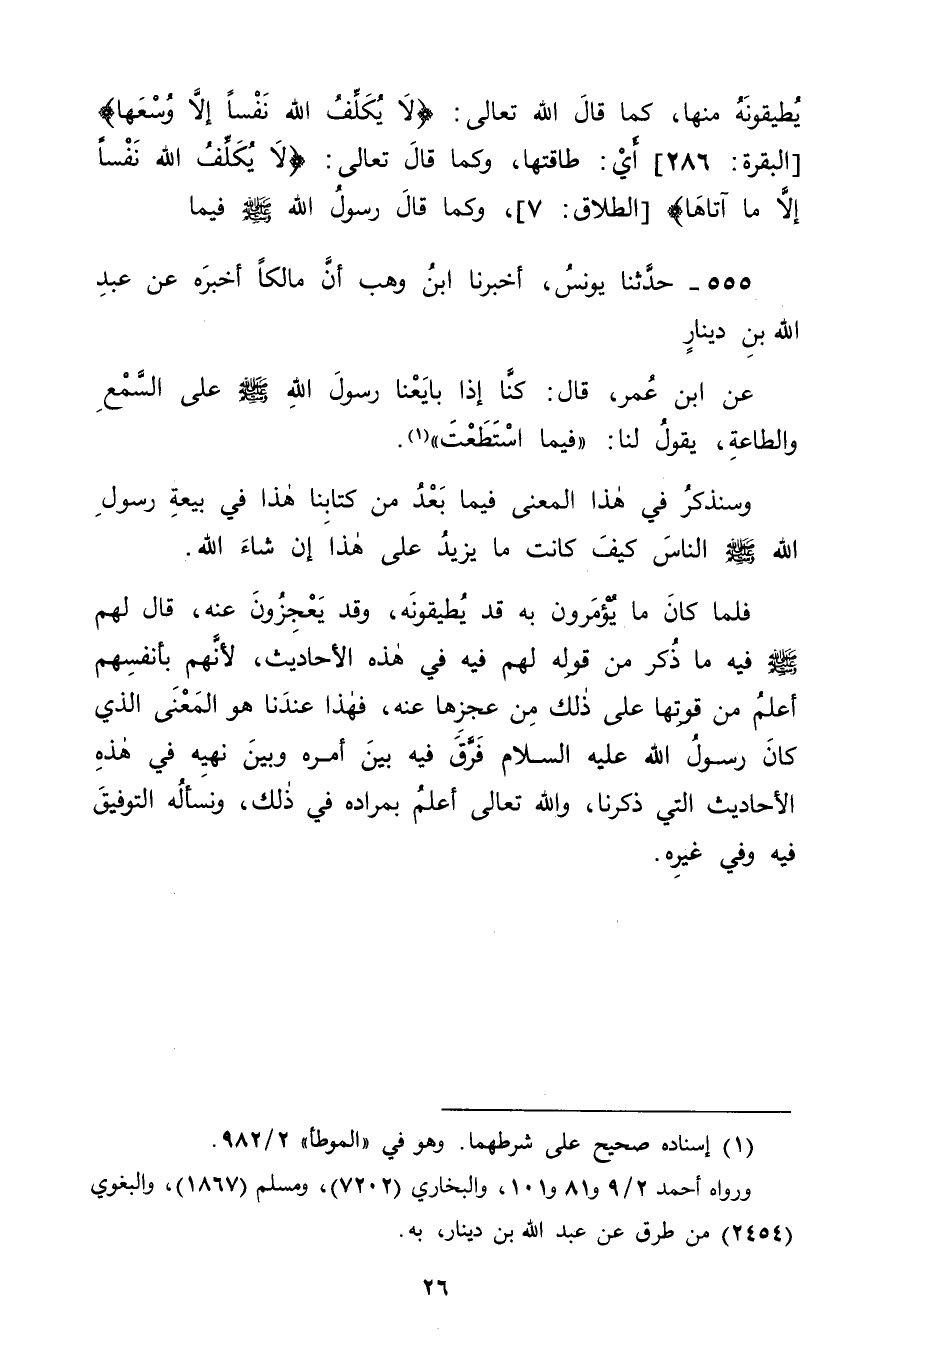 يُطيقونَهُ منها، كما قالَ الله تعالى: ﴿لَا يُكَلِّفُ الله نَفْساً إلَّا وُسْعَها﴾
[البقرة: ٢٨٦] أَيْ: طاقتها، وكما قالَ تعالى: ﴿لَا يُكَلِّفُ الله نَفْساً
إلَّا ما آتاهَا﴾ [الطلاق: ٧]، وكما قالَ رسولُ الله ﷺ فيما
٥٥٥ ـ حدَّثنا يونسُ، أخبرنا ابنُ وهب أنَّ مالكاً أخبرَه عن عبدِ
الله بنِ دينارٍ
عن ابن عُمر، قال: كنَّا إذا بايَعْنا رسولَ اللهِ ﷺ على السَّمْعِ
والطاعةِ، يقولُ لنا: «فيما اسْتَطَعْتَ»(١).
وسنذكرُ في هٰذا المعنى فيما بَعْدُ من كتابِنا هٰذا في بيعةِ رسولِ
الله ﷺ الناسَ كيفَ كانت ما يزيدُ على هٰذا إن شاءَ الله.
فلما كانَ ما يُؤْمَرون به قد يُطيقونَه، وقد يَعْجِزُونَ عنه، قال لهم
ﷺ فيه ما ذُكر من قولِه لهم فيه في هٰذه الأحاديث، لأنَّهم بأنفسِهم
أعلمُ من قوتِها على ذٰلك مِن عجزِها عنه، فهٰذا عندَنا هو المَعْنَى الذي
كانَ رسولُ الله عليه السلام فَرَّقَ فيه بينَ أمره وبينَ نهيِه في هٰذهِ
الأحاديث التي ذكرنا، والله تعالى أعلمُ بمراده في ذٰلك، ونسألُه التوفيقَ
فيه وفي غيرِه.
(١) إسناده صحيح على شرطهما. وهو في «الموطأ» ٩٨٢/٢.
ورواه أحمد ٩/٢ و٨١ و١٠١، والبخاري (٧٢٠٢)، ومسلم (١٨٦٧)، والبغوي
(٢٤٥٤) من طرق عن عبد الله بن دينار، به.
٢٦